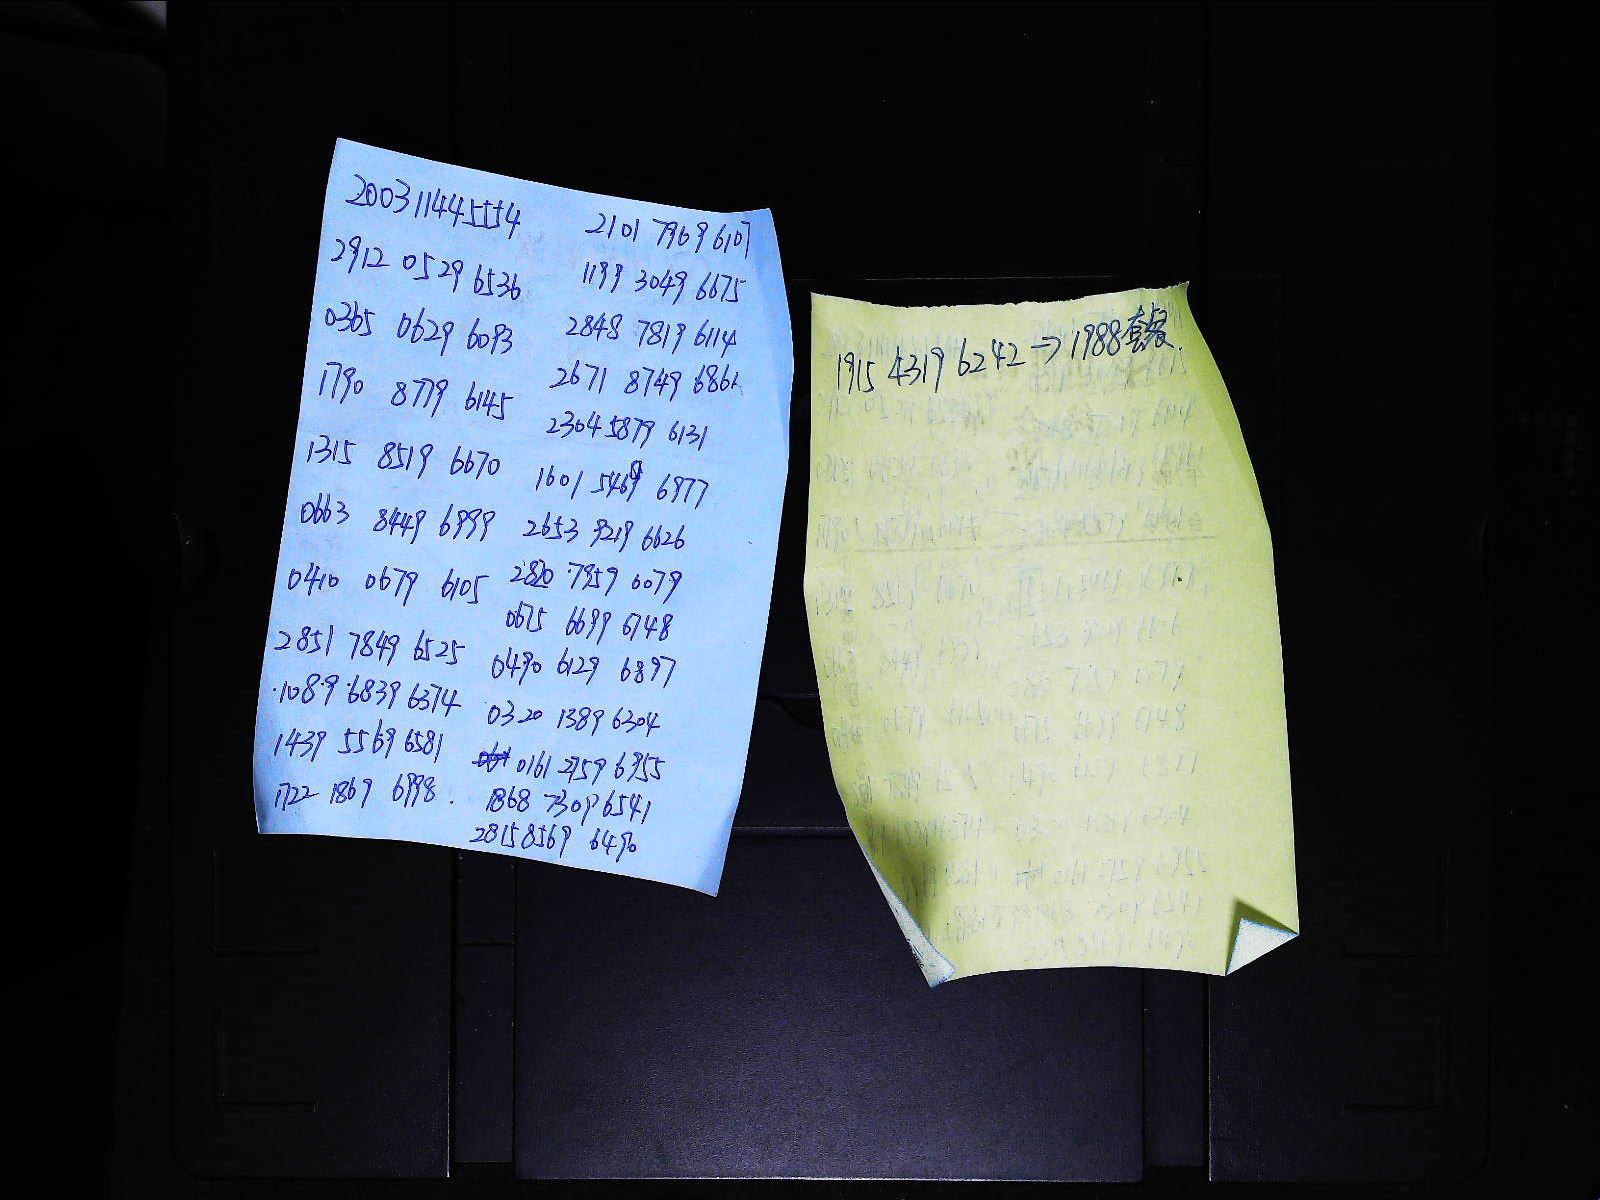 200311445554
2912 0529 6536
0365 0629 6093
1790 8779 6145
1315 8519 6670
0663 8449 6999
0410 0679 6105
2851 7849 6525
1089 6839 6374
1439 5569 6581
1722 1869 6998
2101 7969 6107
1199 3049 6675
2848 7819 6114
2671 8749 6862
2304 5879 6131
1601 5469 6977
2653 9219 6626
2820 7959 6079
0675 6699 6748
0490 6129 6897
0320 1389 6304
0161 2759 6955
1868 7309 6541
2815 8569 6490
1915 4319 6242 → 1988套餐